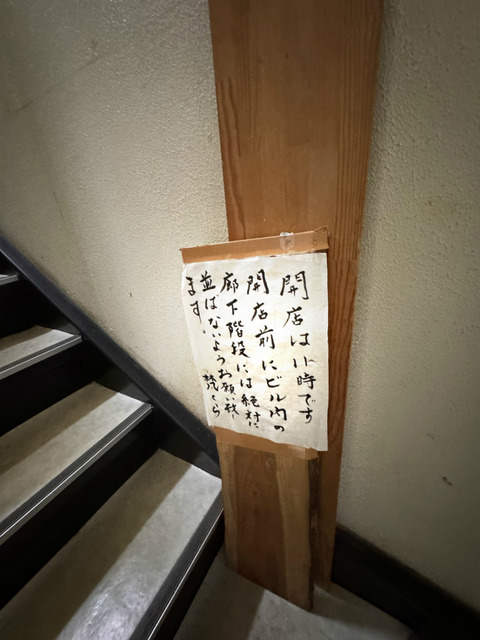 開店は11時です
開店前にビル内の
廊下階段には絶対に
並ばないようお願い致し
ます。